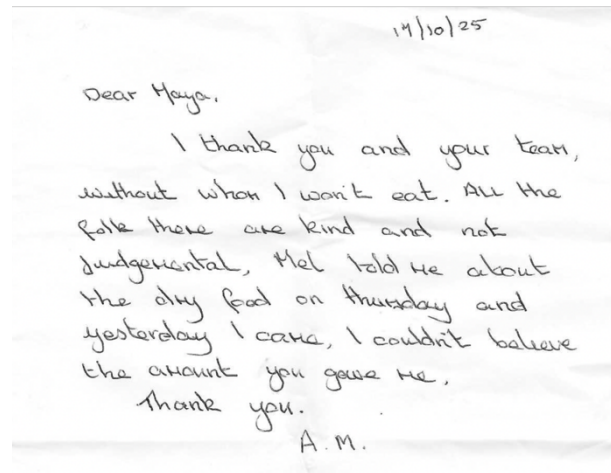 14/10/25
Dear Maya,
I thank you and your team,
without whom I won't eat. All the
folk there are kind and not
judgemental, Mel told me about
the dry food on thursday and
yesterday I came, I couldn't believe
the amount you gave me.
Thank you.
A.M.